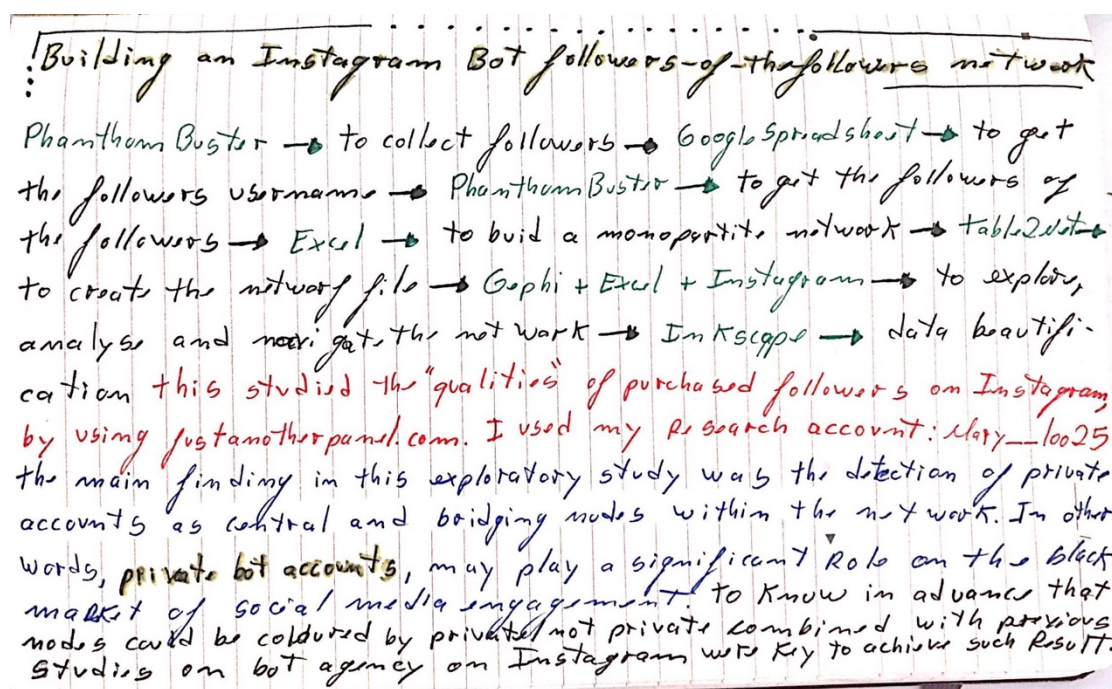 Building an Instagram Bot followers-of-the followers network
Phanthom Buster → to collect followers → Google Spreadsheet → to get
the followers username → Phanthom Buster → to get the followers of
the followers → Excel → to buid a monopartite network → table2net →
to create the networf file → Gephi + Excel + Instagram → to explore,
analyse and navigate the net work → Inkscape → data beautifi-
cation this studied the "qualities" of purchased followers on Instagram,
by using justanotherpanel.com. I used my Research account: Mary__loo25
the main finding in this exploratory study was the detection of private
accounts as central and bridging nodes within the network. In other
words, private bot accounts, may play a significant Role on the black
market of social media engagement. To Know in advance that
nodes could be coloured by private/not private combined with previous
studies on bot agency on Instagram were key to achieve such Result.